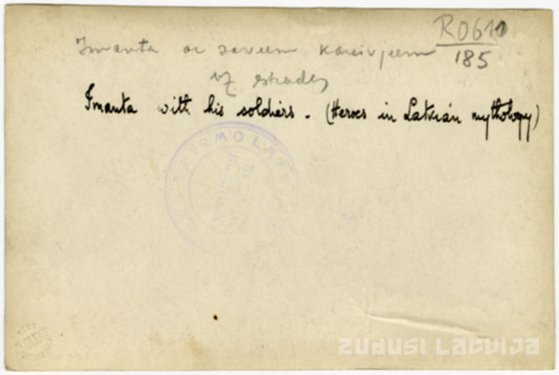 R0611
185
Imanta ar saviem kareivjiem
uz estrades
Imanta with his soldiers. (Heroes in Latvian mythology)
PIRMO LATV
ZUDUSI LATVIJA